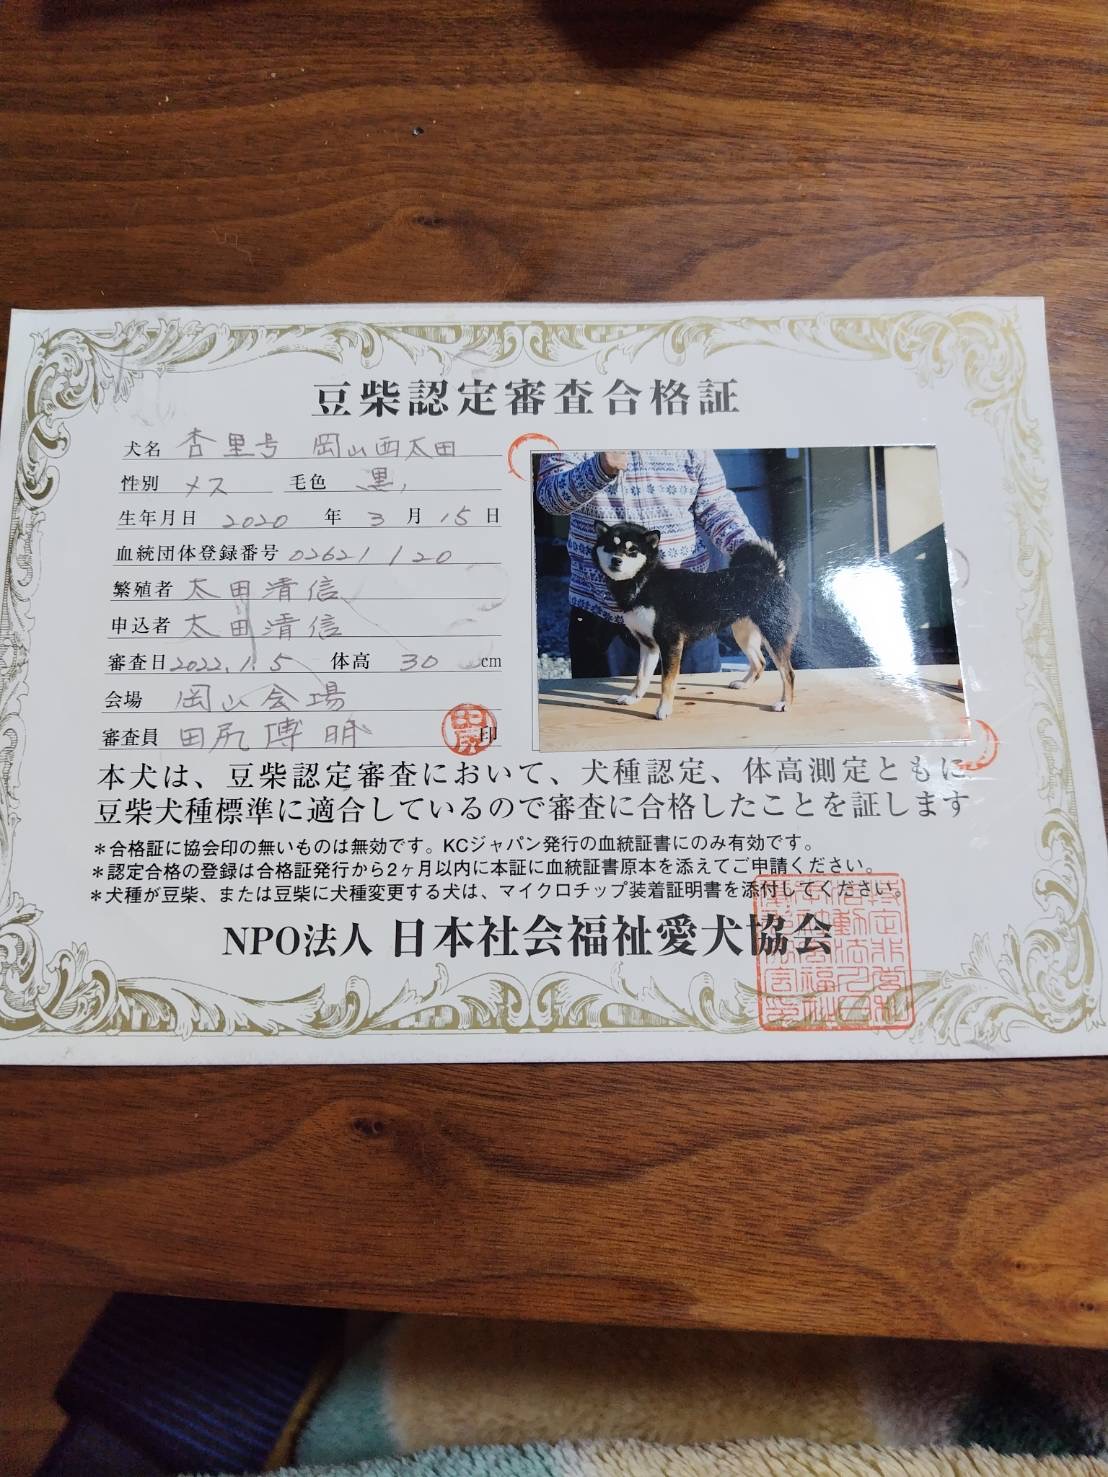 豆柴認定審査合格証
犬名 杏里号 岡山西太田
性別 メス 毛色 黒
生年月日 2020 年 3 月 15 日
血統団体登録番号 02621120
繁殖者 太田清信
申込者 太田清信
審査日 2022.1.5 体高 30 cm
会場 岡山会場
審査員 田尻博明 印
本犬は、豆柴認定審査において、犬種認定、体高測定ともに
豆柴犬種標準に適合しているので審査に合格したことを証します
*合格証に協会印の無いものは無効です。KCジャパン発行の血統証書にのみ有効です。
*認定合格の登録は合格証発行から2ヶ月以内に本証に血統証書原本を添えてご申請ください。
*犬種が豆柴、または豆柴に犬種変更する犬は、マイクロチップ装着証明書を添付してください。
NPO法人 日本社会福祉愛犬協会